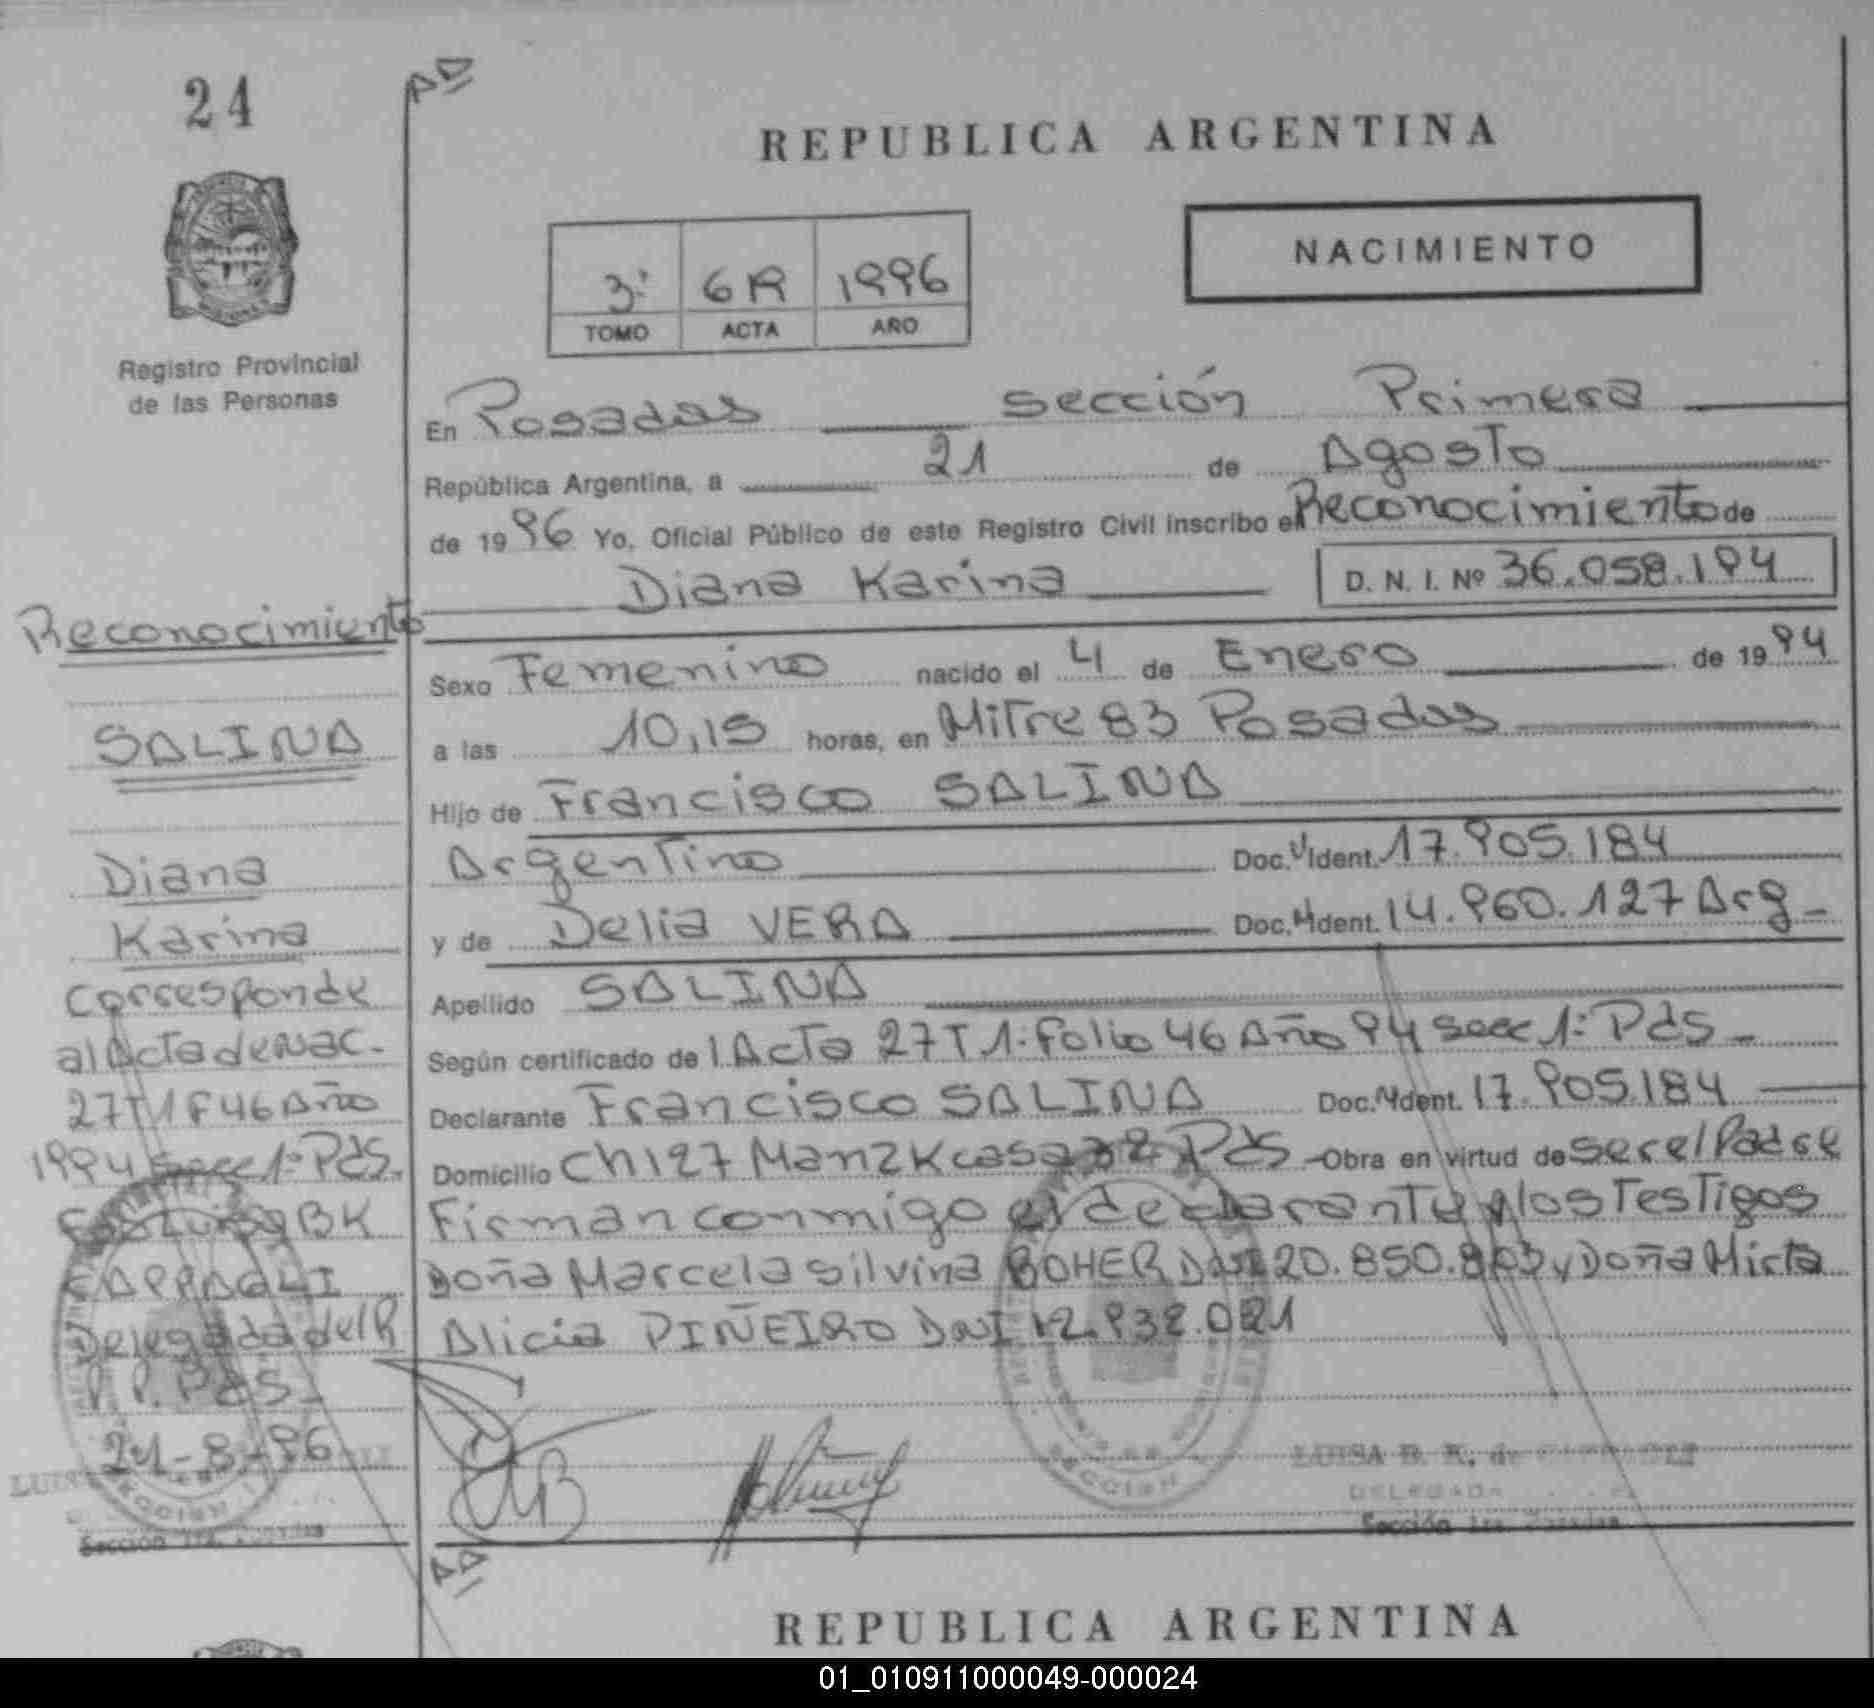 24
Registro Provincial
de las Personas
Reconocimiento
SALINA
Diana
Karina
Corresponde
al Acta de Nac.
27 T 1 F 46 Año
1994 Secc 1ª Pds.
BK
CAPPAGLI
Delegada del R
P. Pds.
21-8-96
Sección 1ra. Posadas
REPUBLICA ARGENTINA
NACIMIENTO
3º 6R 1996
TOMO ACTA AÑO
En Posadas sección Primera
República Argentina, a 21 de Agosto
de 1996 Yo, Oficial Público de este Registro Civil inscribo el Reconocimiento de
Diana Karina D. N. I. Nº 36.058.194
Sexo Femenino nacido el 4 de Enero de 1994
a las 10,15 horas, en Mitre 83 Posadas
Hijo de Francisco SALINA
Argentino Doc. Ident. 17.905.184
y de Delia VERA Doc. Ident. 14.960.127 Arg
Apellido SALINA
Según certificado de l Acta 27 T 1º folio 46 Año 94 Secc 1ª Pds
Declarante Francisco SALINA Doc. Ident. 17.905.184
Domicilio Ch 127 Manz K casa Pds Obra en virtud de ser el Padre
Firman conmigo el declarante y los Testigos
Doña Marcela Silvina BOHER DNI 20.850.803 y Doña Mirta
Alicia PIÑEIRO DNI 12.932.021
LUISA B. K. de CAPPAGLI
DELEGADA
Sección 1ra. Posadas
REPUBLICA ARGENTINA
01_010911000049-000024